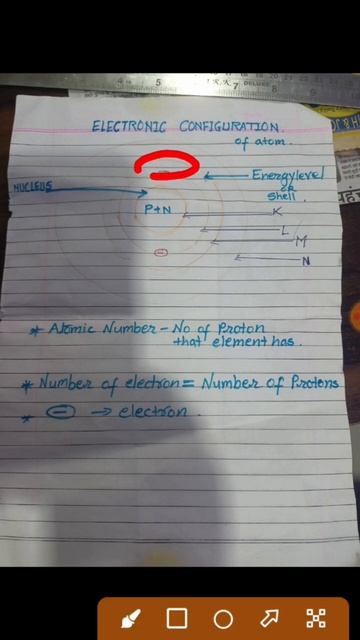 ELECTRONIC CONFIGURATION.
of atom.
Energy level
or
shell.
NUCLEUS
P+N
K
L
M
N
* Atomic Number - No of Proton
that element has.
* Number of electron = Number of Protons
* ⊖ → electron.